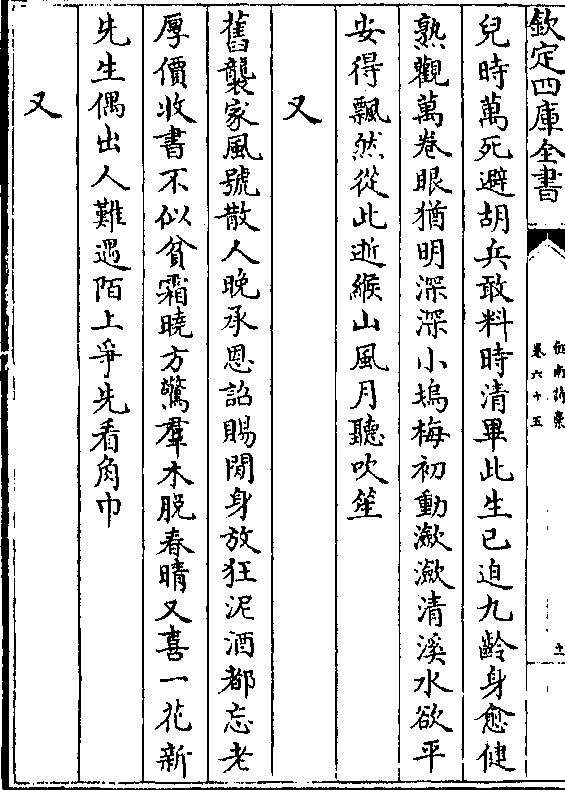 欽定四庫全書
劍南詩稾
卷六十五
兒時萬死避胡兵敢料時清畢此生已迫九齡身愈健
熟觀萬卷眼猶明深深小塢梅初動潋潋清溪水欲平
安得飄然從此逝緱山風月聽吹笙
又
舊襲家風號散人晚承恩詔賜閒身放狂泥酒都忘老
厚價收書不似貧霜曉方驚羣木脱春晴又喜一花新
先生偶出人難遇陌上爭先看角巾
又